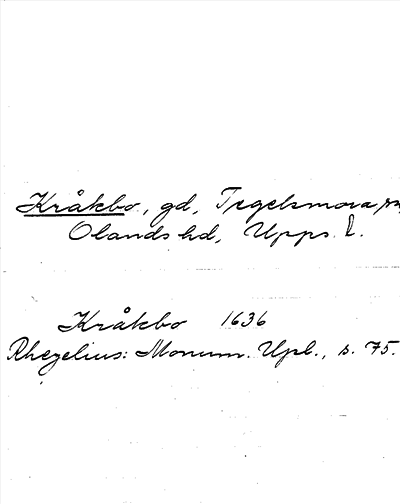 Kråkbo, gd, Tegelsmora sn,
Olands hd, Upps. l.
Kråkbo 1636
Rhezelius: Monum. Upl., s. 75.